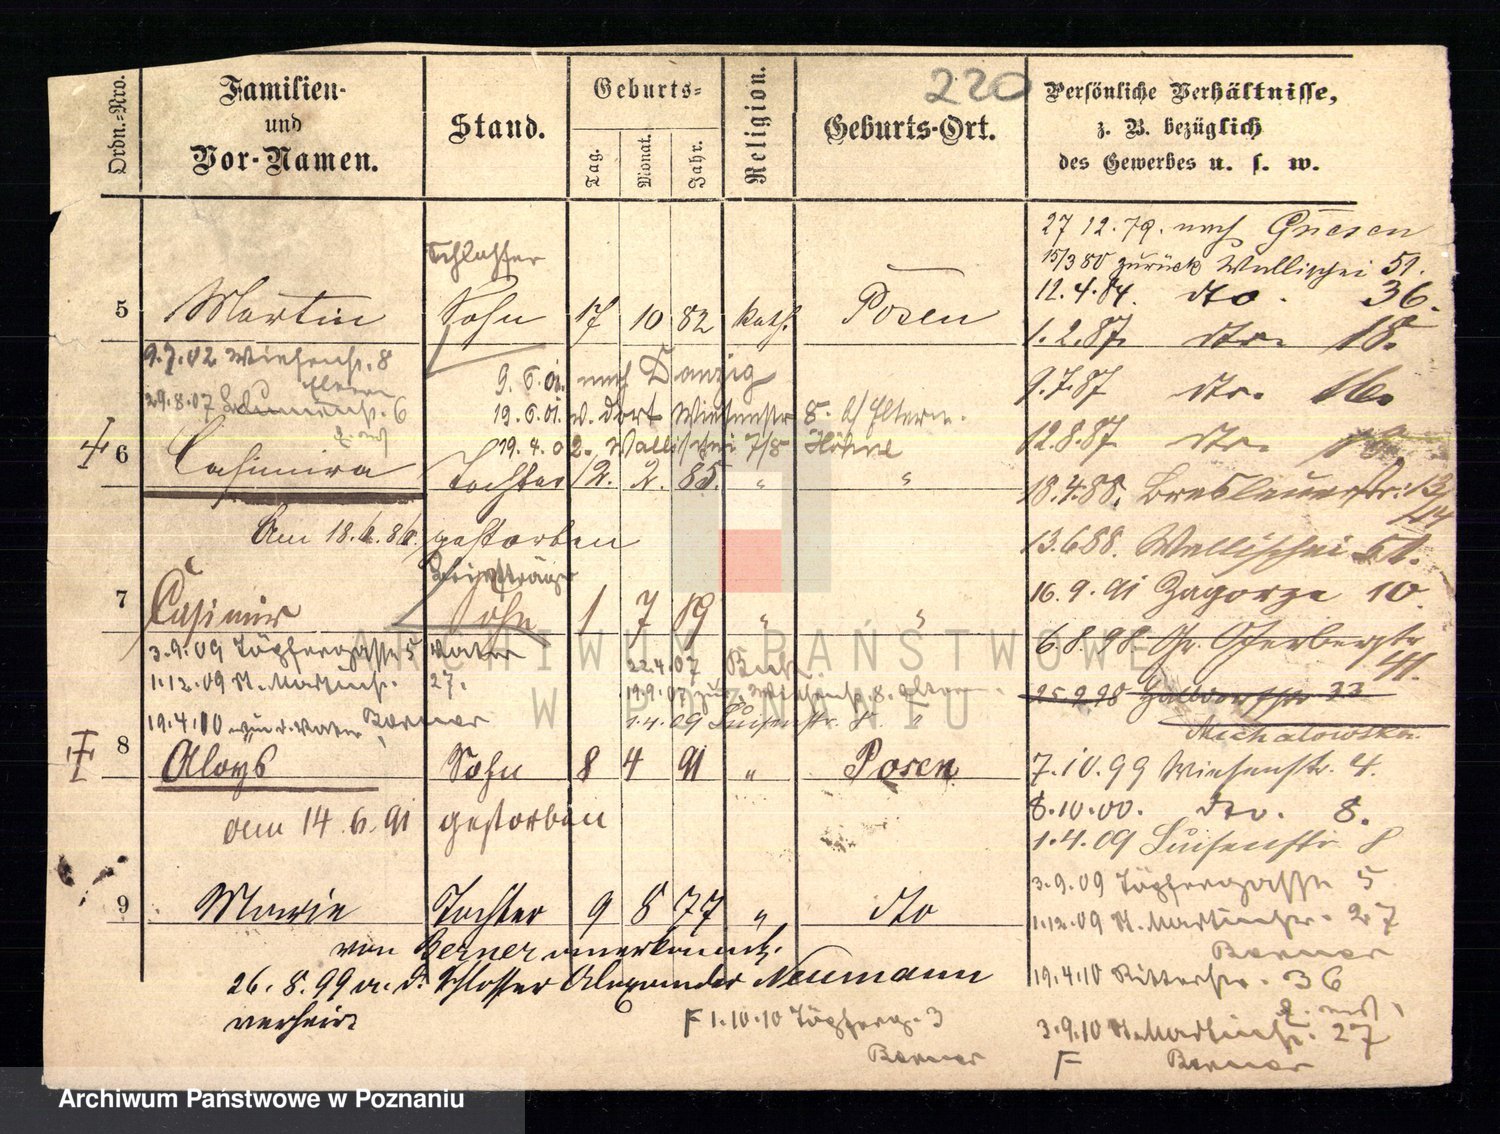 220
Ordn.-Nro.
Familien-
und
Vor-Namen.
Stand.
Geburts-
Tag.
Monat.
Jahr.
Religion.
Geburts-Ort.
Persönliche Verhältnisse,
z. B. bezüglich
des Gewerbes u. s. w.
Schlosser
5 Martin Sohn 17 10 82 kath. Posen
9.7.02 Wiesenstr. 8
29.8.07 6
9.6.01. nach Danzig
19.6.01. v. dort Wiesenstr 8. b/ Eltern.
19.4.02. Wallischei 7/8
6 Casimira Tochter 12. 2. 85. " "
Am 18. gestorben
7 Casimir Sohn 1 7 89 " "
3.9.09 Töpfergasse 5 Vater
1.12.09 St. Martinstr. 27.
22.4.07
19.9.07 Wiesenstr. 8.
1.4.09 Luisenstr. 8
19.4.10 Berner
8 Aloys Sohn 8 4 91 " Posen
am 14.6.91 gestorben
9 Marie Tochter 9 8 77 " dto
von Berner anerkannt.
26.8.99 a. d. Schlosser Alexander Neumann
verheir.
F 1.10.10 Töpferg. 3
Berner
27 12.79. nach Gnesen
15/3 80 zurück Wallischei 51.
12.4.84. dto. 36.
1.2.87. dto. 18.
9.7.87 dto. 16.
12.8.87 dto.
18.4.88. Breslauerstr. 13/14
13.6 88. Wallischei 51.
16.9.91 Zagorze 10.
6.8.98. Gr. Gerberstr
41.
25.9.98 33
Michalowska
7.10.99 Wiesenstr. 4.
8.10.00. dto. 8.
1.4.09 Luisenstr 8
3.9.09 Töpfergasse 5
1.12.09 St. Martinstr. 27
Berner
19.4.10 Ritterstr. 36
3.9.10 St. Martinstr. 27
F Berner
ARCHIWUM PAŃSTWOWE
W POZNANIU
Archiwum Państwowe w Poznaniu